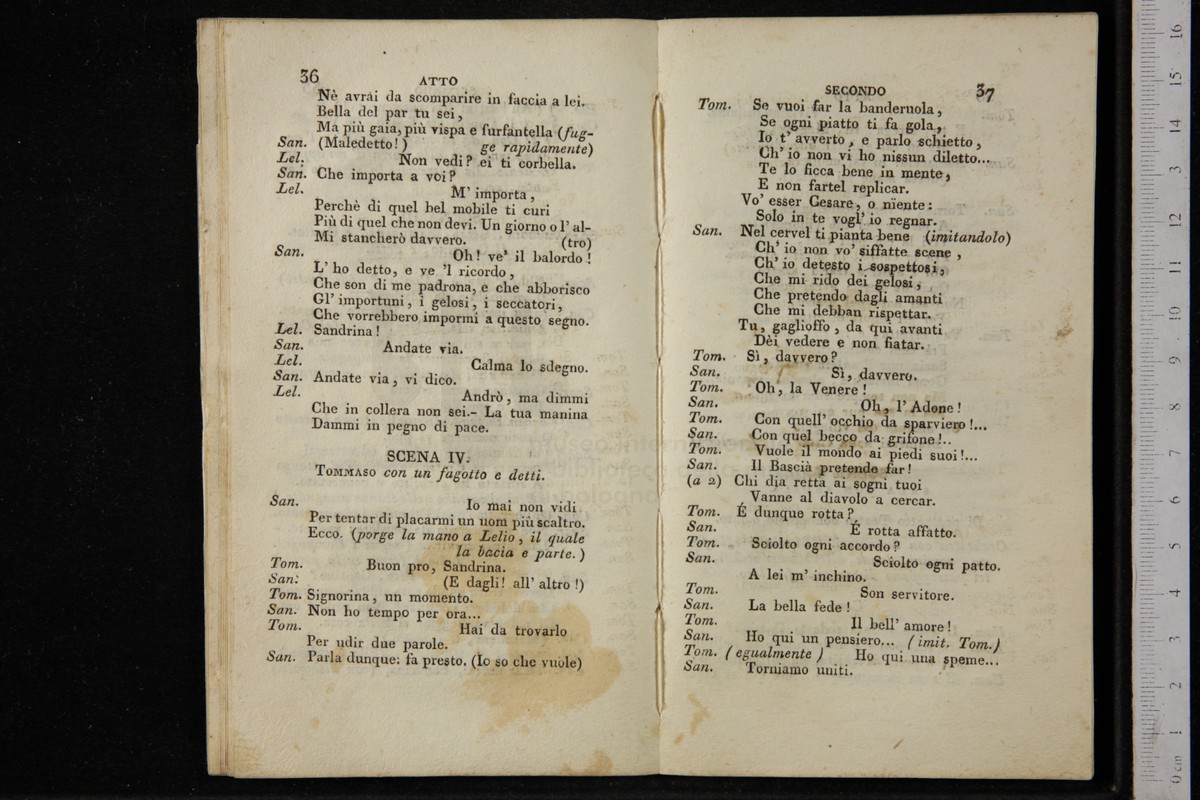 36
ATTO
Nè avrai da scomparire in faccia a lei.
Bella del par tu sei,
Ma più gaia, più vispa e furfantella (fug-
San. (Maledetto!) ge rapidamente)
Lel. Non vedi? ei ti corbella.
San. Che importa a voi?
Lel. M' importa,
Perchè di quel bel mobile ti curi
Più di quel che non devi. Un giorno o l' al-
Mi stancherò davvero. (tro)
San. Oh! ve' il balordo!
L' ho detto, e ve 'l ricordo,
Che son di me padrona, e che abborisco
Gl' importuni, i gelosi, i seccatori,
Che vorrebbero impormi a questo segno.
Lel. Sandrina!
San. Andate via.
Lel. Calma lo sdegno.
San. Andate via, vi dico.
Lel. Andrò, ma dimmi
Che in collera non sei.- La tua manina
Dammi in pegno di pace.
SCENA IV.
TOMMASO con un fagotto e detti.
San. Io mai non vidi
Per tentar di placarmi un uom più scaltro.
Ecco. (porge la mano a Lelio, il quale
la bacia e parte.)
Tom. Buon pro, Sandrina.
San: (E dagli! all' altro!)
Tom. Signorina, un momento.
San. Non ho tempo per ora...
Tom. Hai da trovarlo
Per udir due parole.
San. Parla dunque: fa presto. (Io so che vuole)
SECONDO
37
Tom. Se vuoi far la banderuola,
Se ogni piatto ti fa gola,
Io t' avverto, e parlo schietto,
Ch' io non vi ho nissun diletto...
Te lo ficca bene in mente,
E non fartel replicar.
Vo' esser Cesare, o niente:
Solo in te vogl' io regnar.
San. Nel cervel ti pianta bene (imitandolo)
Ch' io non vo' siffatte scene,
Ch' io detesto i sospettosi,
Che mi rido dei gelosi,
Che pretendo dagli amanti
Che mi debban rispettar.
Tu, gaglioffo, da qui avanti
Dèi vedere e non fiatar.
Tom. Sì, davvero?
San. Sì, davvero.
Tom. Oh, la Venere!
San. Oh, l' Adone!
Tom. Con quell' occhio da sparviero!...
San. Con quel becco da grifone!..
Tom. Vuole il mondo ai piedi suoi!...
San. Il Bascià pretende far!
(a 2) Chi dia retta ai sogni tuoi
Vanne al diavolo a cercar.
Tom. É dunque rotta?
San. É rotta affatto.
Tom. Sciolto ogni accordo?
San. Sciolto ogni patto.
A lei m' inchino.
Tom. Son servitore.
San. La bella fede!
Tom. Il bell' amore!
San. Ho qui un pensiero... (imit. Tom.)
Tom. (egualmente) Ho qui una speme...
San. Torniamo uniti.